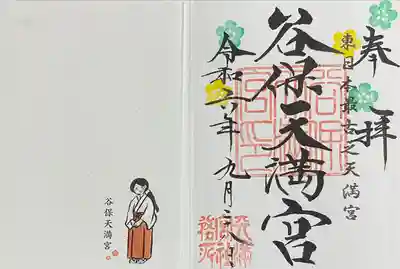 奉拝
東日本最古之天満宮
谷保天満宮
令和六年九月二八日
谷保天満宮